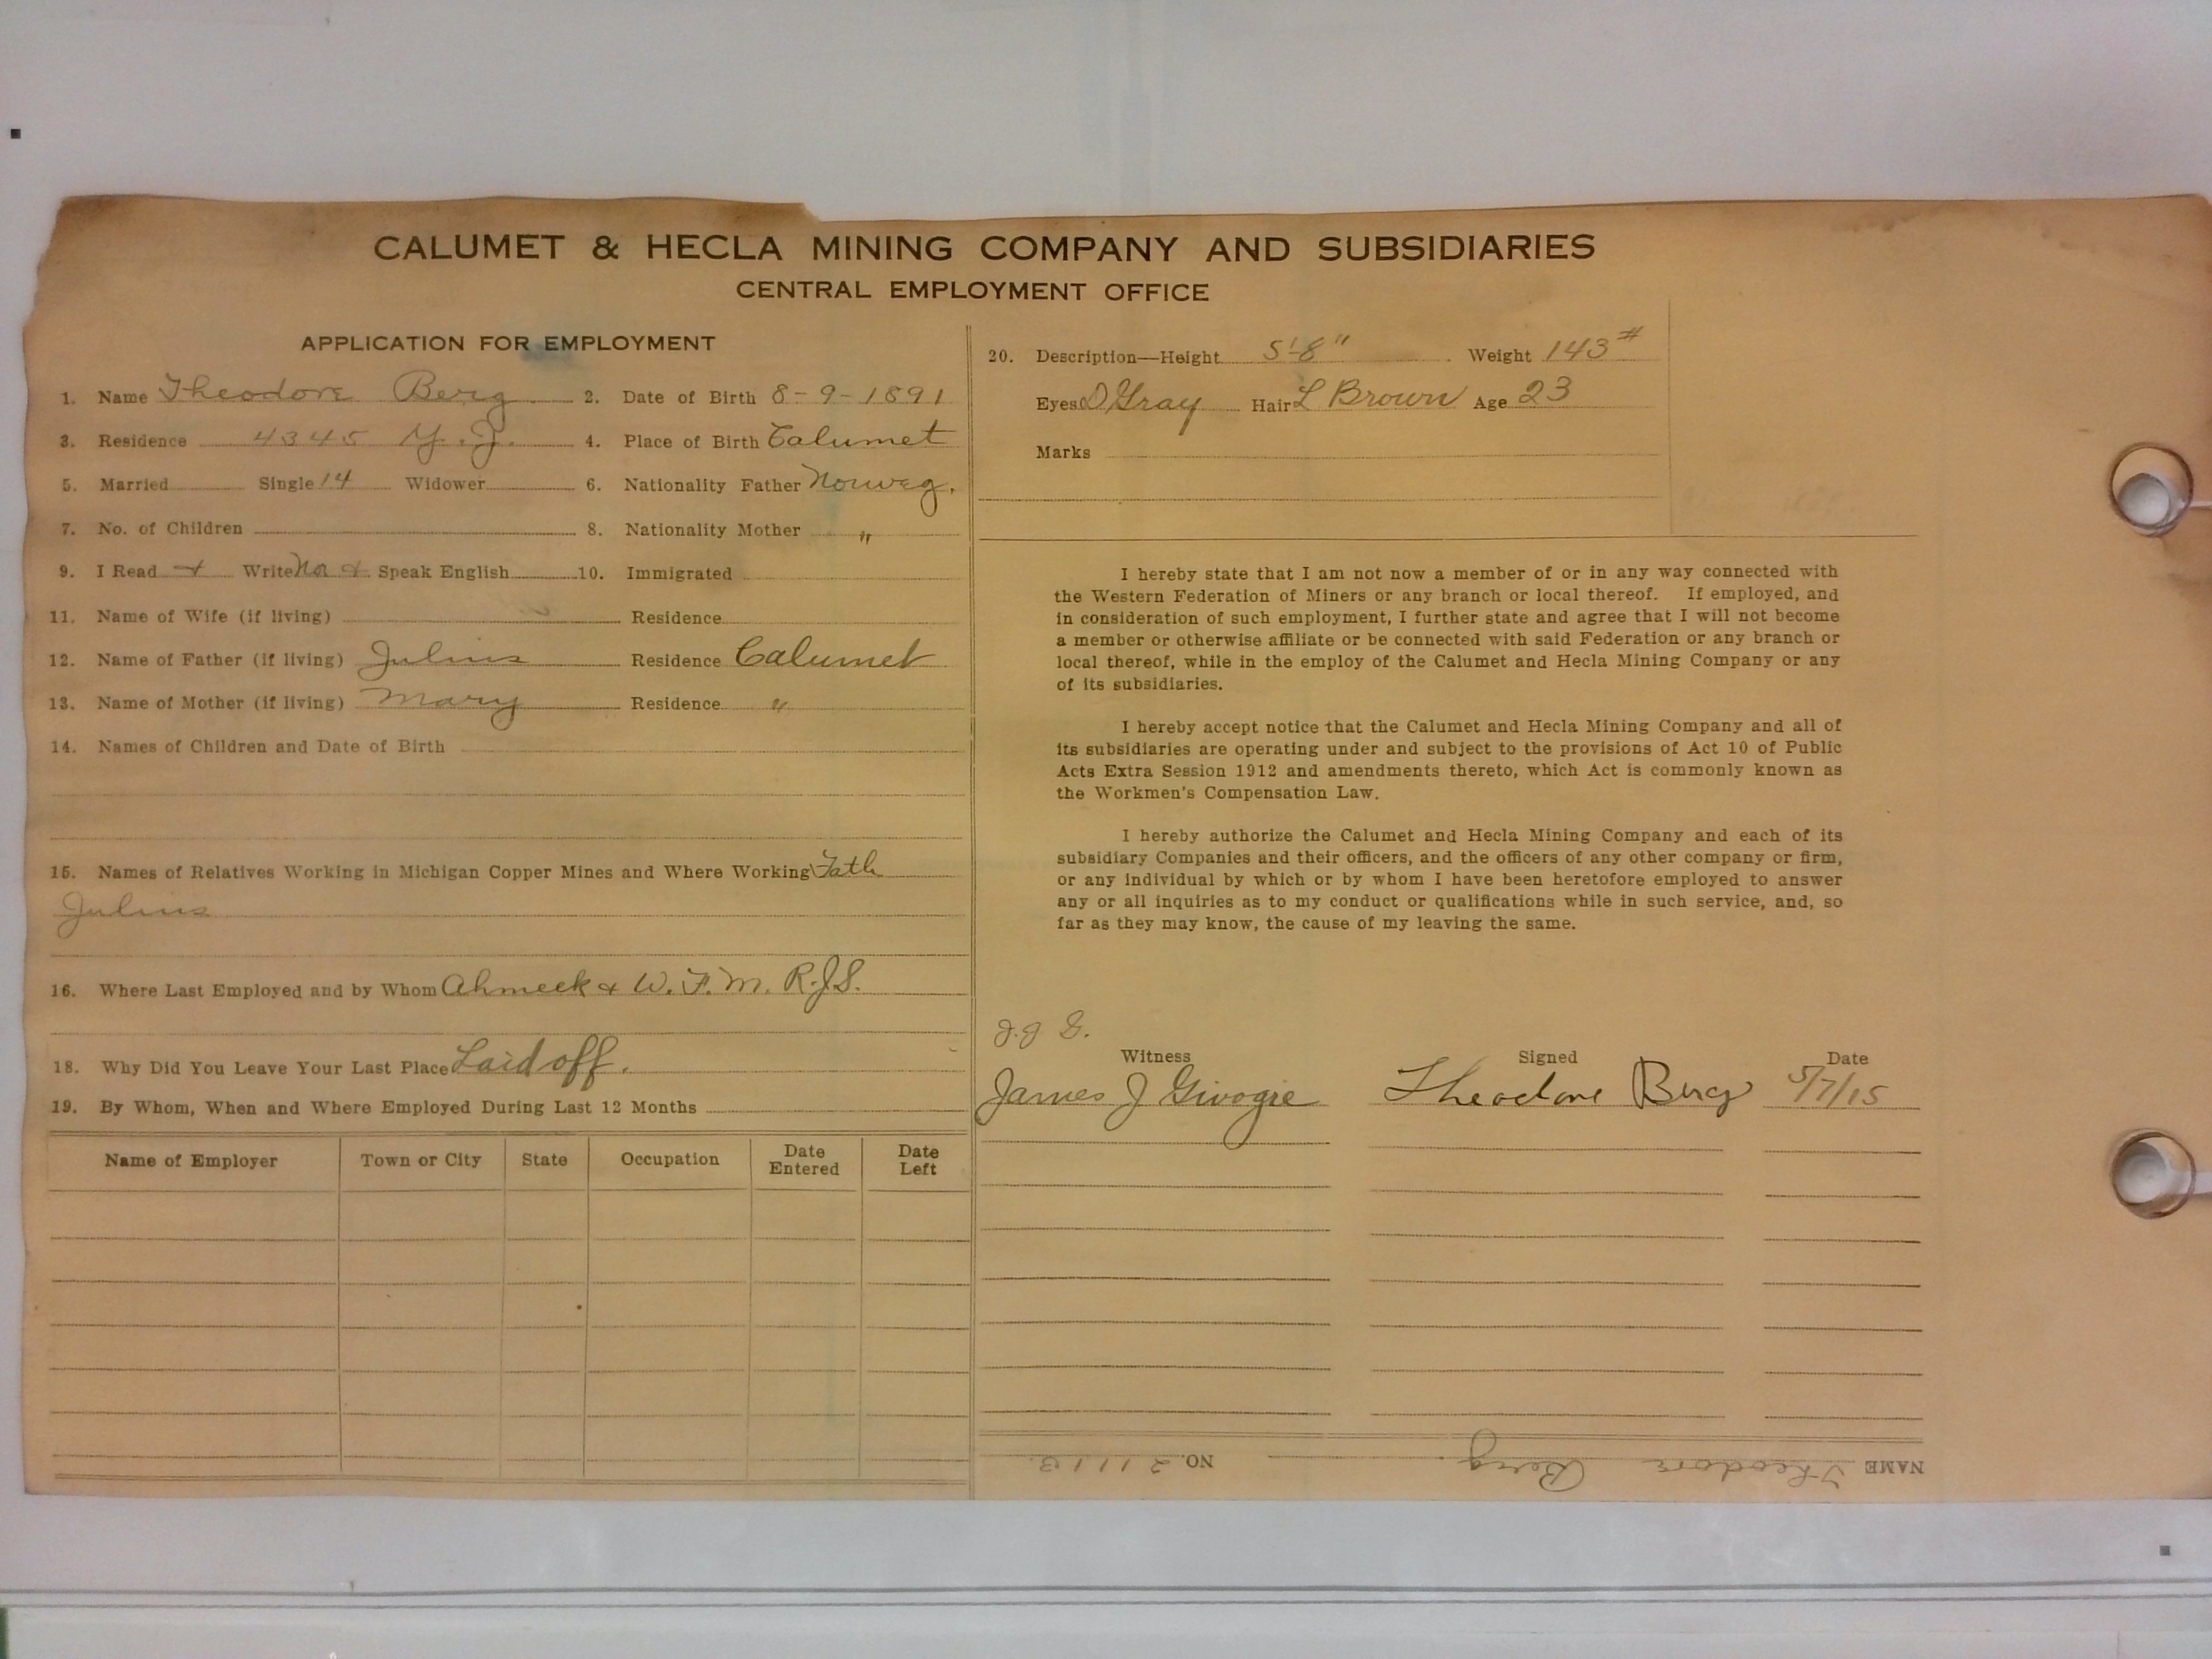 CALUMET & HECLA MINING COMPANY AND SUBSIDIARIES
CENTRAL EMPLOYMENT OFFICE
APPLICATION FOR EMPLOYMENT
1. Name Theodore Berg 2. Date of Birth 8-9-1891
3. Residence 4345 Y.J. 4. Place of Birth Calumet
5. Married Single 14 Widower 6. Nationality Father Norweg.
7. No. of Children 8. Nationality Mother "
9. I Read Write Speak English 10. Immigrated
11. Name of Wife (if living) Residence
12. Name of Father (if living) Julius Residence Calumet
13. Name of Mother (if living) Mary Residence "
14. Names of Children and Date of Birth
15. Names of Relatives Working in Michigan Copper Mines and Where Working Fath
Julius
16. Where Last Employed and by Whom Ahmeek & W.F.M. R.J.S.
18. Why Did You Leave Your Last Place Laid off.
19. By Whom, When and Where Employed During Last 12 Months
Name of Employer Town or City State Occupation Date Entered Date Left
20. Description—Height 5'-8" Weight 143#
Eyes D Gray Hair L Brown Age 23
Marks
I hereby state that I am not now a member of or in any way connected with
the Western Federation of Miners or any branch or local thereof. If employed, and
in consideration of such employment, I further state and agree that I will not become
a member or otherwise affiliate or be connected with said Federation or any branch or
local thereof, while in the employ of the Calumet and Hecla Mining Company or any
of its subsidiaries.
I hereby accept notice that the Calumet and Hecla Mining Company and all of
its subsidiaries are operating under and subject to the provisions of Act 10 of Public
Acts Extra Session 1912 and amendments thereto, which Act is commonly known as
the Workmen's Compensation Law.
I hereby authorize the Calumet and Hecla Mining Company and each of its
subsidiary Companies and their officers, and the officers of any other company or firm,
or any individual by which or by whom I have been heretofore employed to answer
any or all inquiries as to my conduct or qualifications while in such service, and, so
far as they may know, the cause of my leaving the same.
J.J G.
Witness Signed Date
James J Givogre Theodore Berg 5/7/15
NAME Theodore Berg. NO. 21113